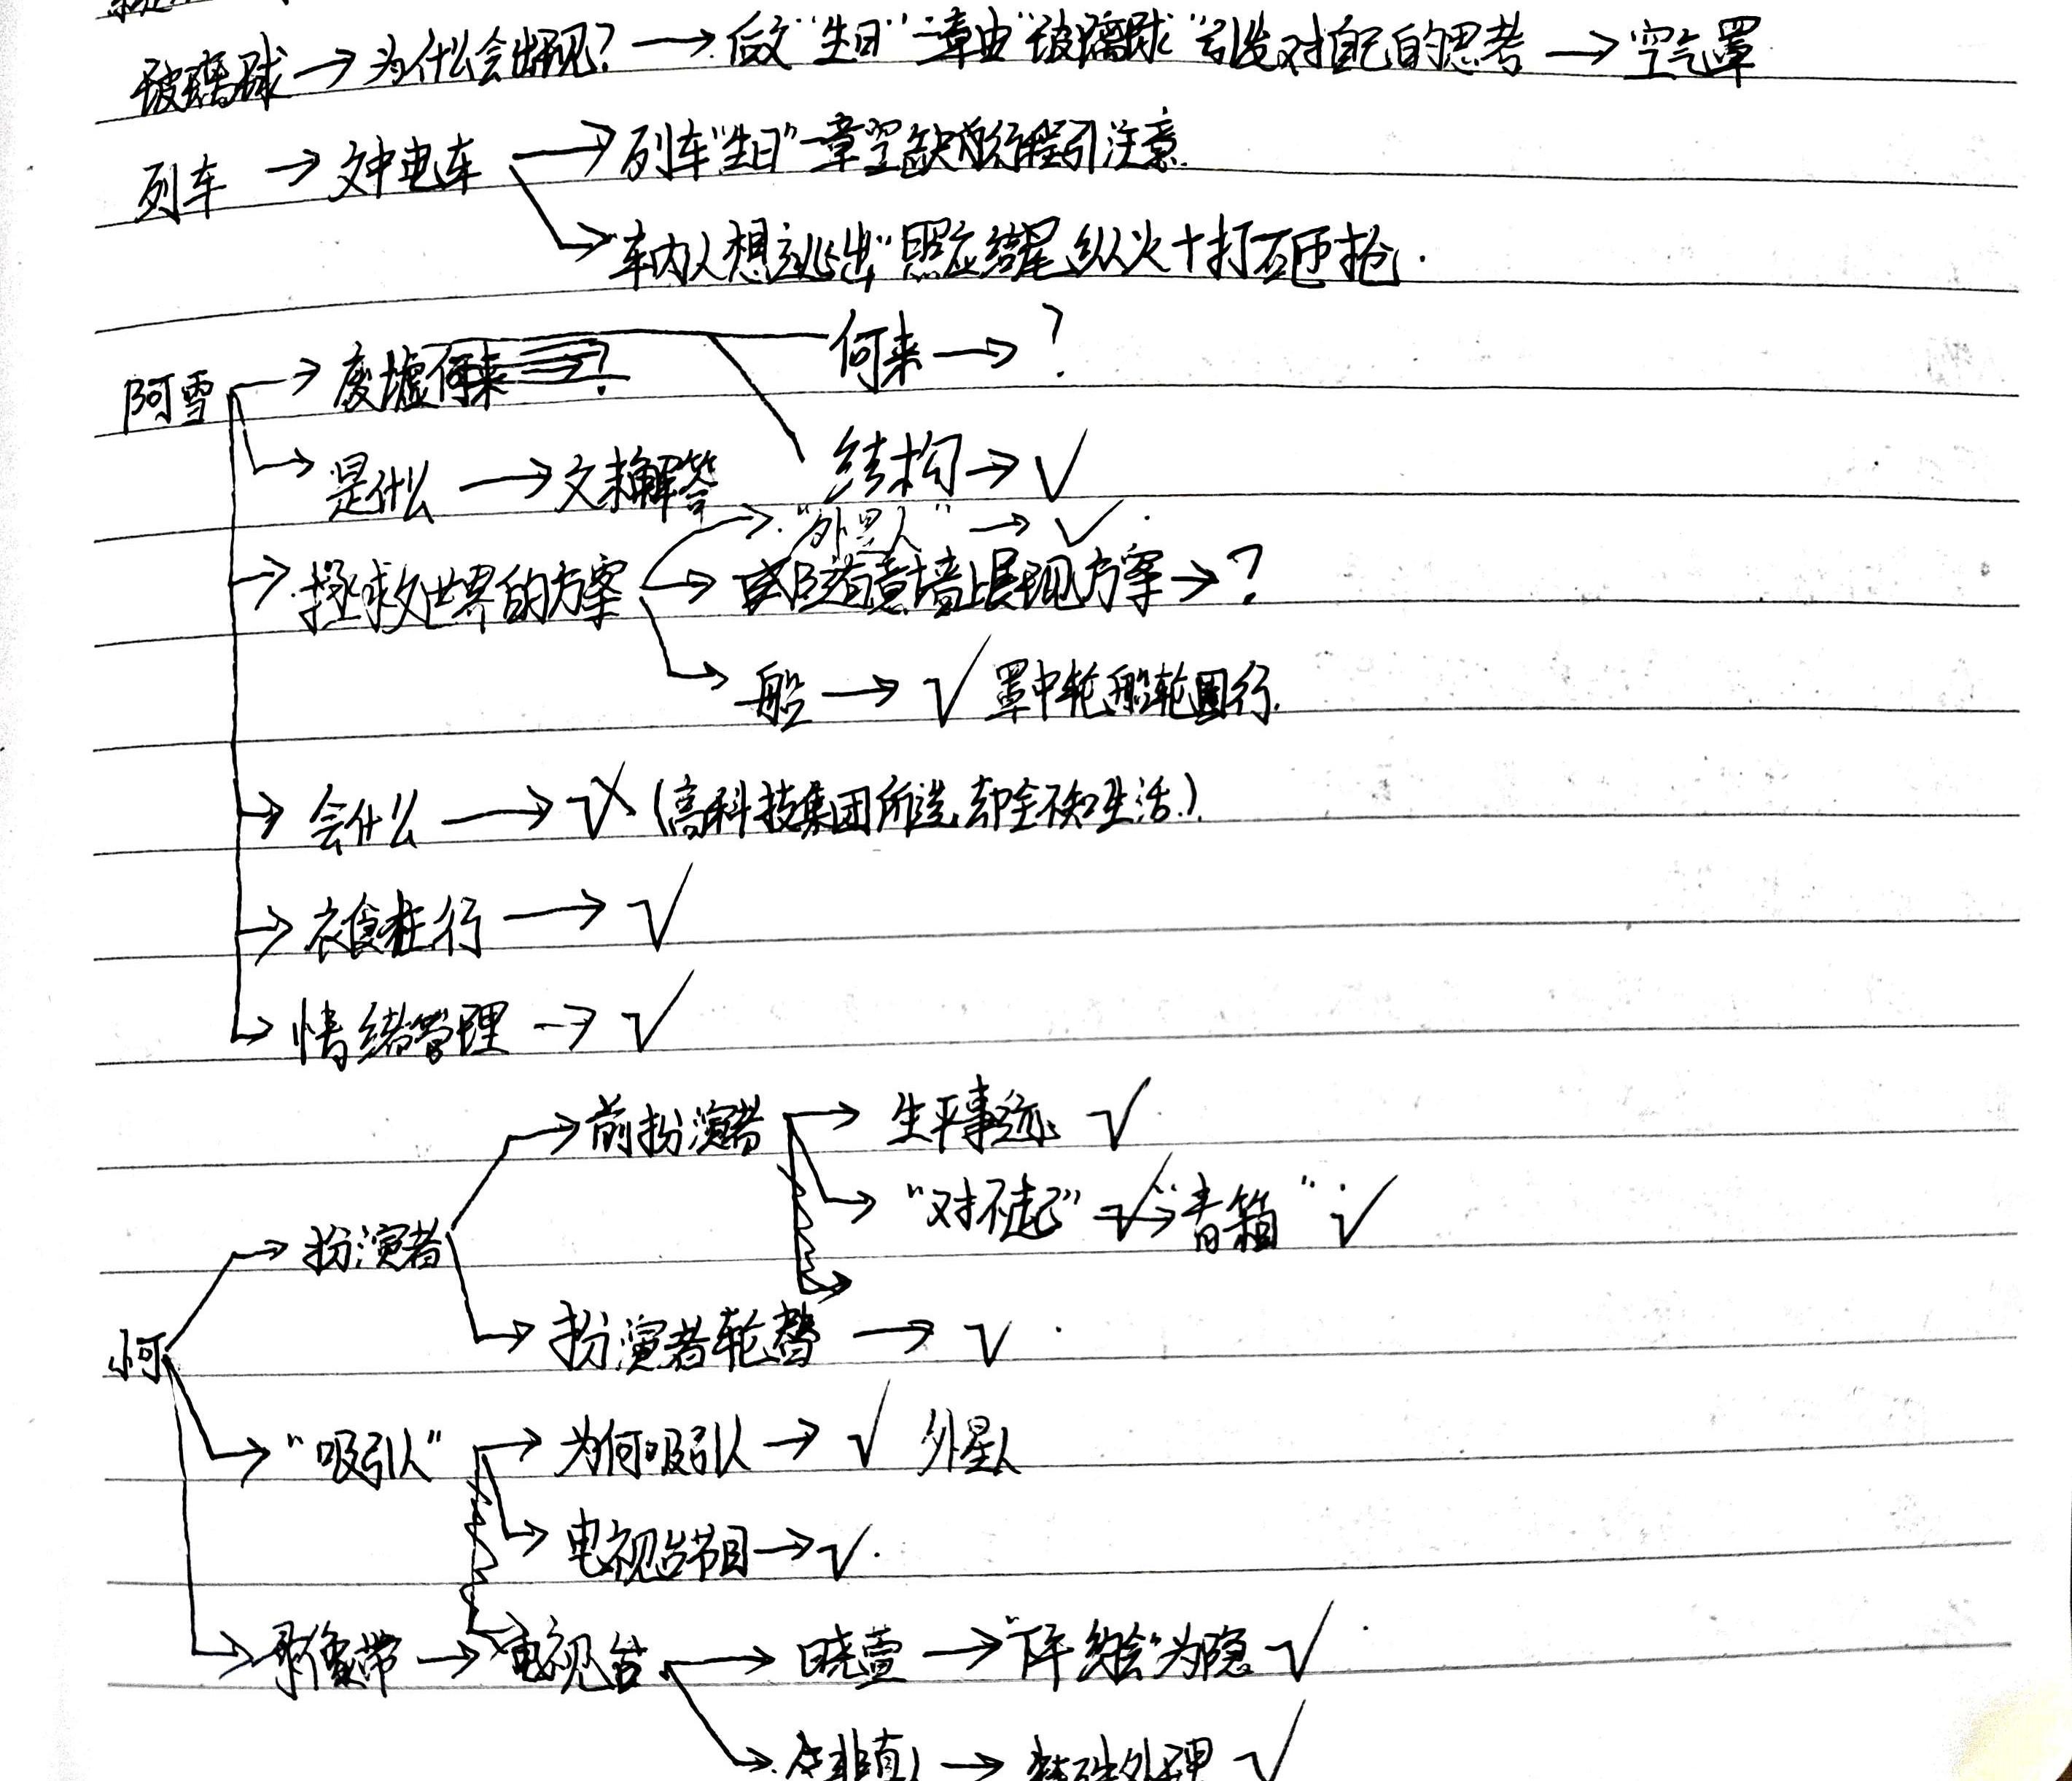 玻璃球→为什么会出现?→后文"生日"一章由"玻璃球"引发对自己的思考→空气罩
列车→文中电车→列车"生日"一章空缺的行程引注意
→"车内人想逃出"照应结尾纵火+打砸抢.
阿雪→废墟何来→? 何来→?
结构→√
→是什么→文未解答
→"外星人"→√
→拯救世界的方案→墙上展现方案→?
→船→√罩中轮船轮回行.
→会什么→√(高科技集团所选,却全不知生活.)
→衣食住行→√
→情绪管理→√
→前扮演者→生平事迹√
→"对不起"→"音箱"√
→扮演者
→扮演者轮替→√
小何
→"吸引人"→为何吸引人→√外星人
→电视台节目→√.
→录像带→电视台→晓萱→"下午约会"为隐√
→非真人→特殊处理√